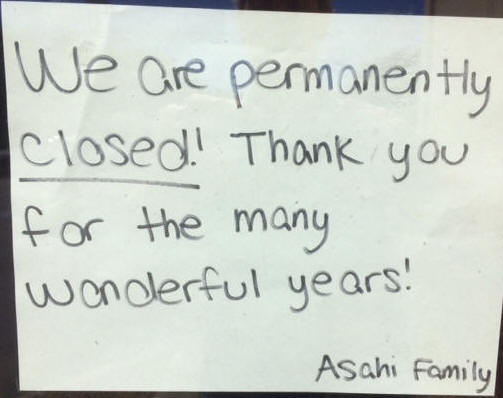 We are permanently
closed! Thank you
for the many
wonderful years!
Asahi Family